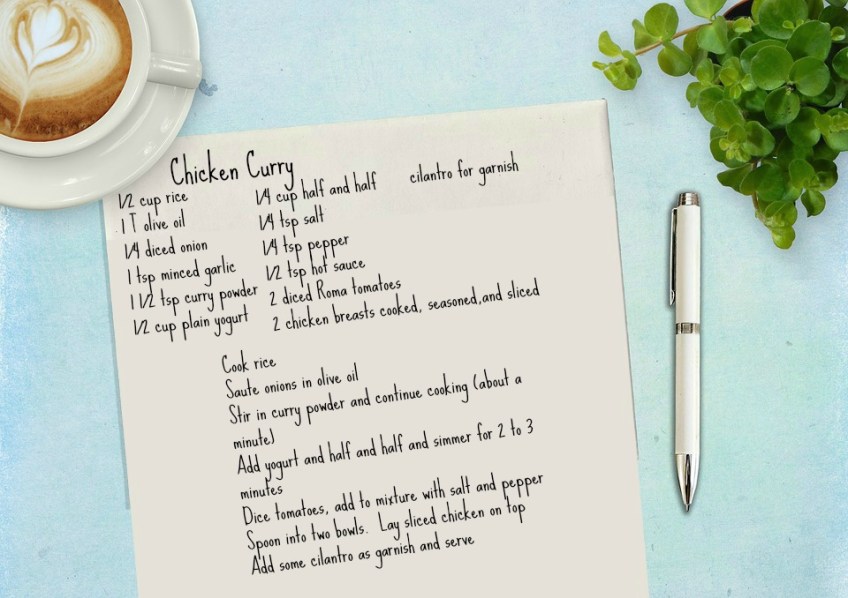 Chicken Curry
1/2 cup rice
1 T olive oil
1/4 diced onion
1 tsp minced garlic
1 1/2 tsp curry powder
1/2 cup plain yogurt
1/4 cup half and half
1/4 tsp salt
1/4 tsp pepper
1/2 tsp hot sauce
2 diced Roma tomatoes
2 chicken breasts cooked, seasoned,and sliced
cilantro for garnish
Cook rice
Saute onions in olive oil
Stir in curry powder and continue cooking (about a
minute)
Add yogurt and half and half and simmer for 2 to 3
minutes
Dice tomatoes, add to mixture with salt and pepper
Spoon into two bowls. Lay sliced chicken on top
Add some cilantro as garnish and serve